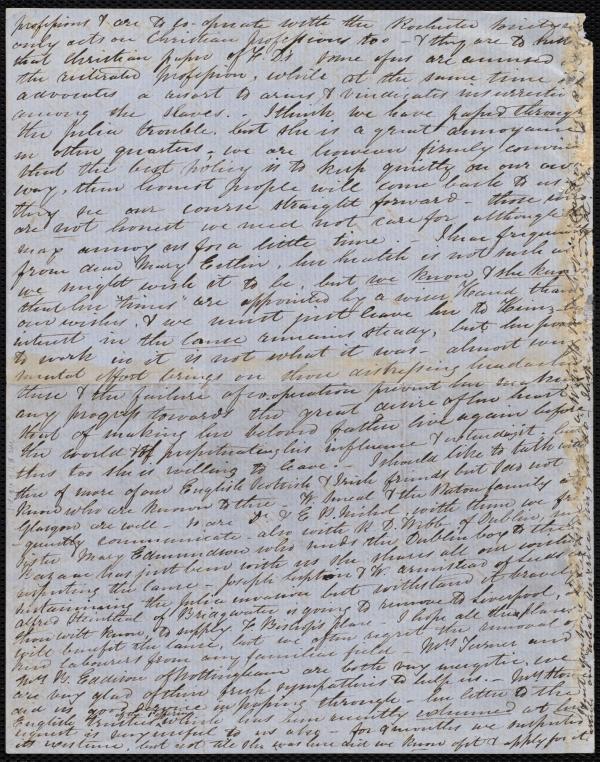 professions & are to co-operate with the Rochester Society
only acts on Christian professions too - & they are to
that Christian paper of F. D's some of us are amused
the reiterated profession, while at the same time
advocates a resort to arms & vindicates insurrection
among the slaves. - I think we have passed through
the Julia trouble, but she is a great annoyance
in other quarters, we are however firmly convinced
that the best policy is to keep quietly on our own
way, then honest people will come back to us, as
they see our course straight forward - those who
are not honest we need not care for although they
may annoy us for a little time. - I hear frequently
from dear Mary Estlin, her health is not such as
we might wish it to be, but we know & she knows
that her "times" are appointed by a wiser Hand than
our wishes, & we must just leave her to Him -
interest in the cause remains steady, but her power
to work in it is not what it was - almost every
mental effort brings on those distressing headaches
these & the failure of co-operation prevent her making
any progress towards the great desire of her heart
that of making her beloved father live again before
the world & perpetuating his influence
this too she is willing to leave. - I should like to talk to
thee of more of our English Scotish & Irish friends but I do not
know who are known to thee. W. Smeal & the Paton family of
Glasgow are well - so are J. & E. P. Nichol, with them we
quently communicate - also with R. D. Webb of Dublin, his
sister Mary Edmundson who sends the Dublin box to the
Bazaar has just been with us she shares all our
respecting the cause. Joseph Lupton & W. Armistead of Leeds
sustaining the Julia invasion but withstand it bravely
Alfred Steinthal of Bridgwater is going to remove to Liverpool,
thou wilt know, to supply F. Bishop's place - I hope all these plans
will benefit the cause, but we often regret the removal of
kind labourers from any familiar field - Mrs Turner and
Mrs B. Eddison of Nottingham are both very energetic. we
are very glad of their fresh sympathies to help us. - Mrs Stowe
did us good service in passing through - her letter to the
English
request is very useful to us also - for 2 months we suspected
its existence, but not till she was here did we know of it & apply for it